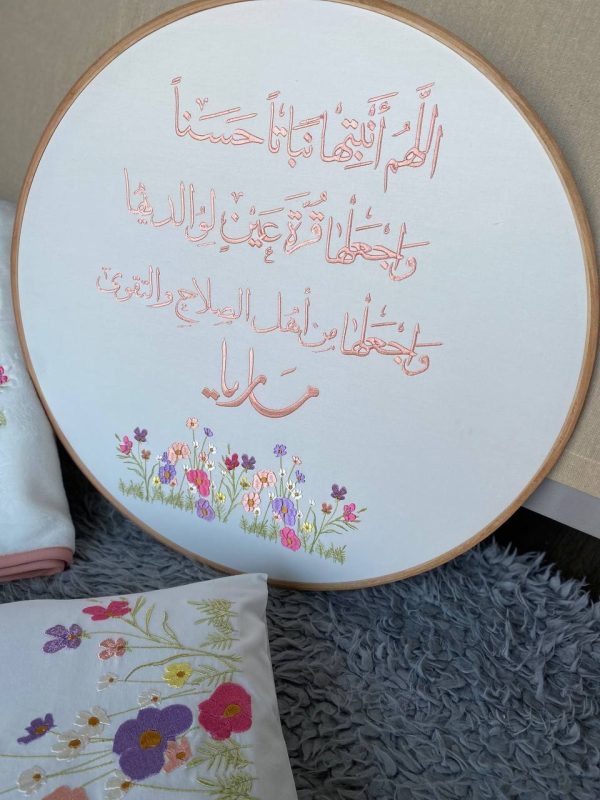 اللَّهُم أَنبتِها نَبَاتاً حَسَناً
وَاجْعَلْها قُرَّةَ عَينٍ لِوُالديْها
وَاجْعَلْها مِن أهْل الصِلاحِ والتقوىٰ
مَاريا